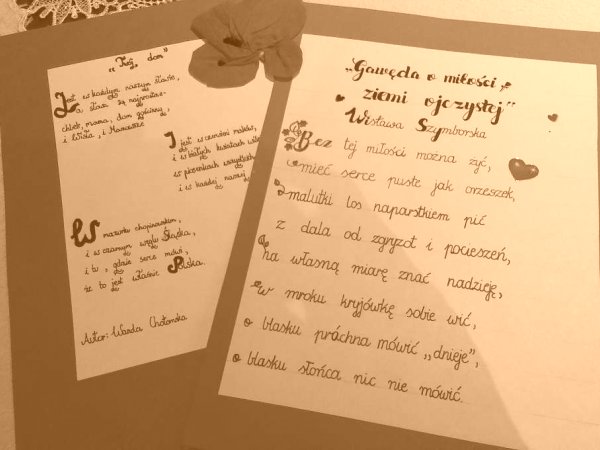 „Kraj, dom"
Jest w każdym naszym słowie,
a słowa są najprostsze-
chleb, mama, dom gościnny,
i Wisła, i Mazowsze
I jest w czerwieni maków,
i w białych kwiatach
w piosenkach wszystkich
i w każdej naszej
W mazurku chopinowskim,
i w czarnym węglu Śląska,
i tu, gdzie serce mówi,
że to jest właśnie Polska.
Autor: Wanda Chotomska
„Gawęda o miłości
ziemi ojczystej"
Wisława Szymborska
Bez tej miłości można żyć,
mieć serce puste jak orzeszek,
malutki los naparstkiem pić
z dala od zgryzot i pocieszeń,
na własną miarę znać nadzieję,
w mroku kryjówkę sobie wić,
o blasku próchna mówić „dnieje",
o blasku słońca nic nie mówić.